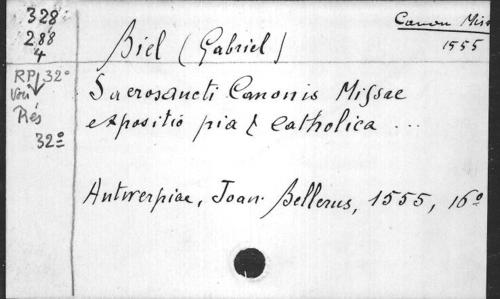 328
288
4
RP 32°
Voir
Rés
32°
Canon Miss
1555
Biel (Gabriel)
Sacrosancti Canonis Missae
expositio pia & catholica ...
Antwerpiae, Joan. Bellerus, 1555, 16°